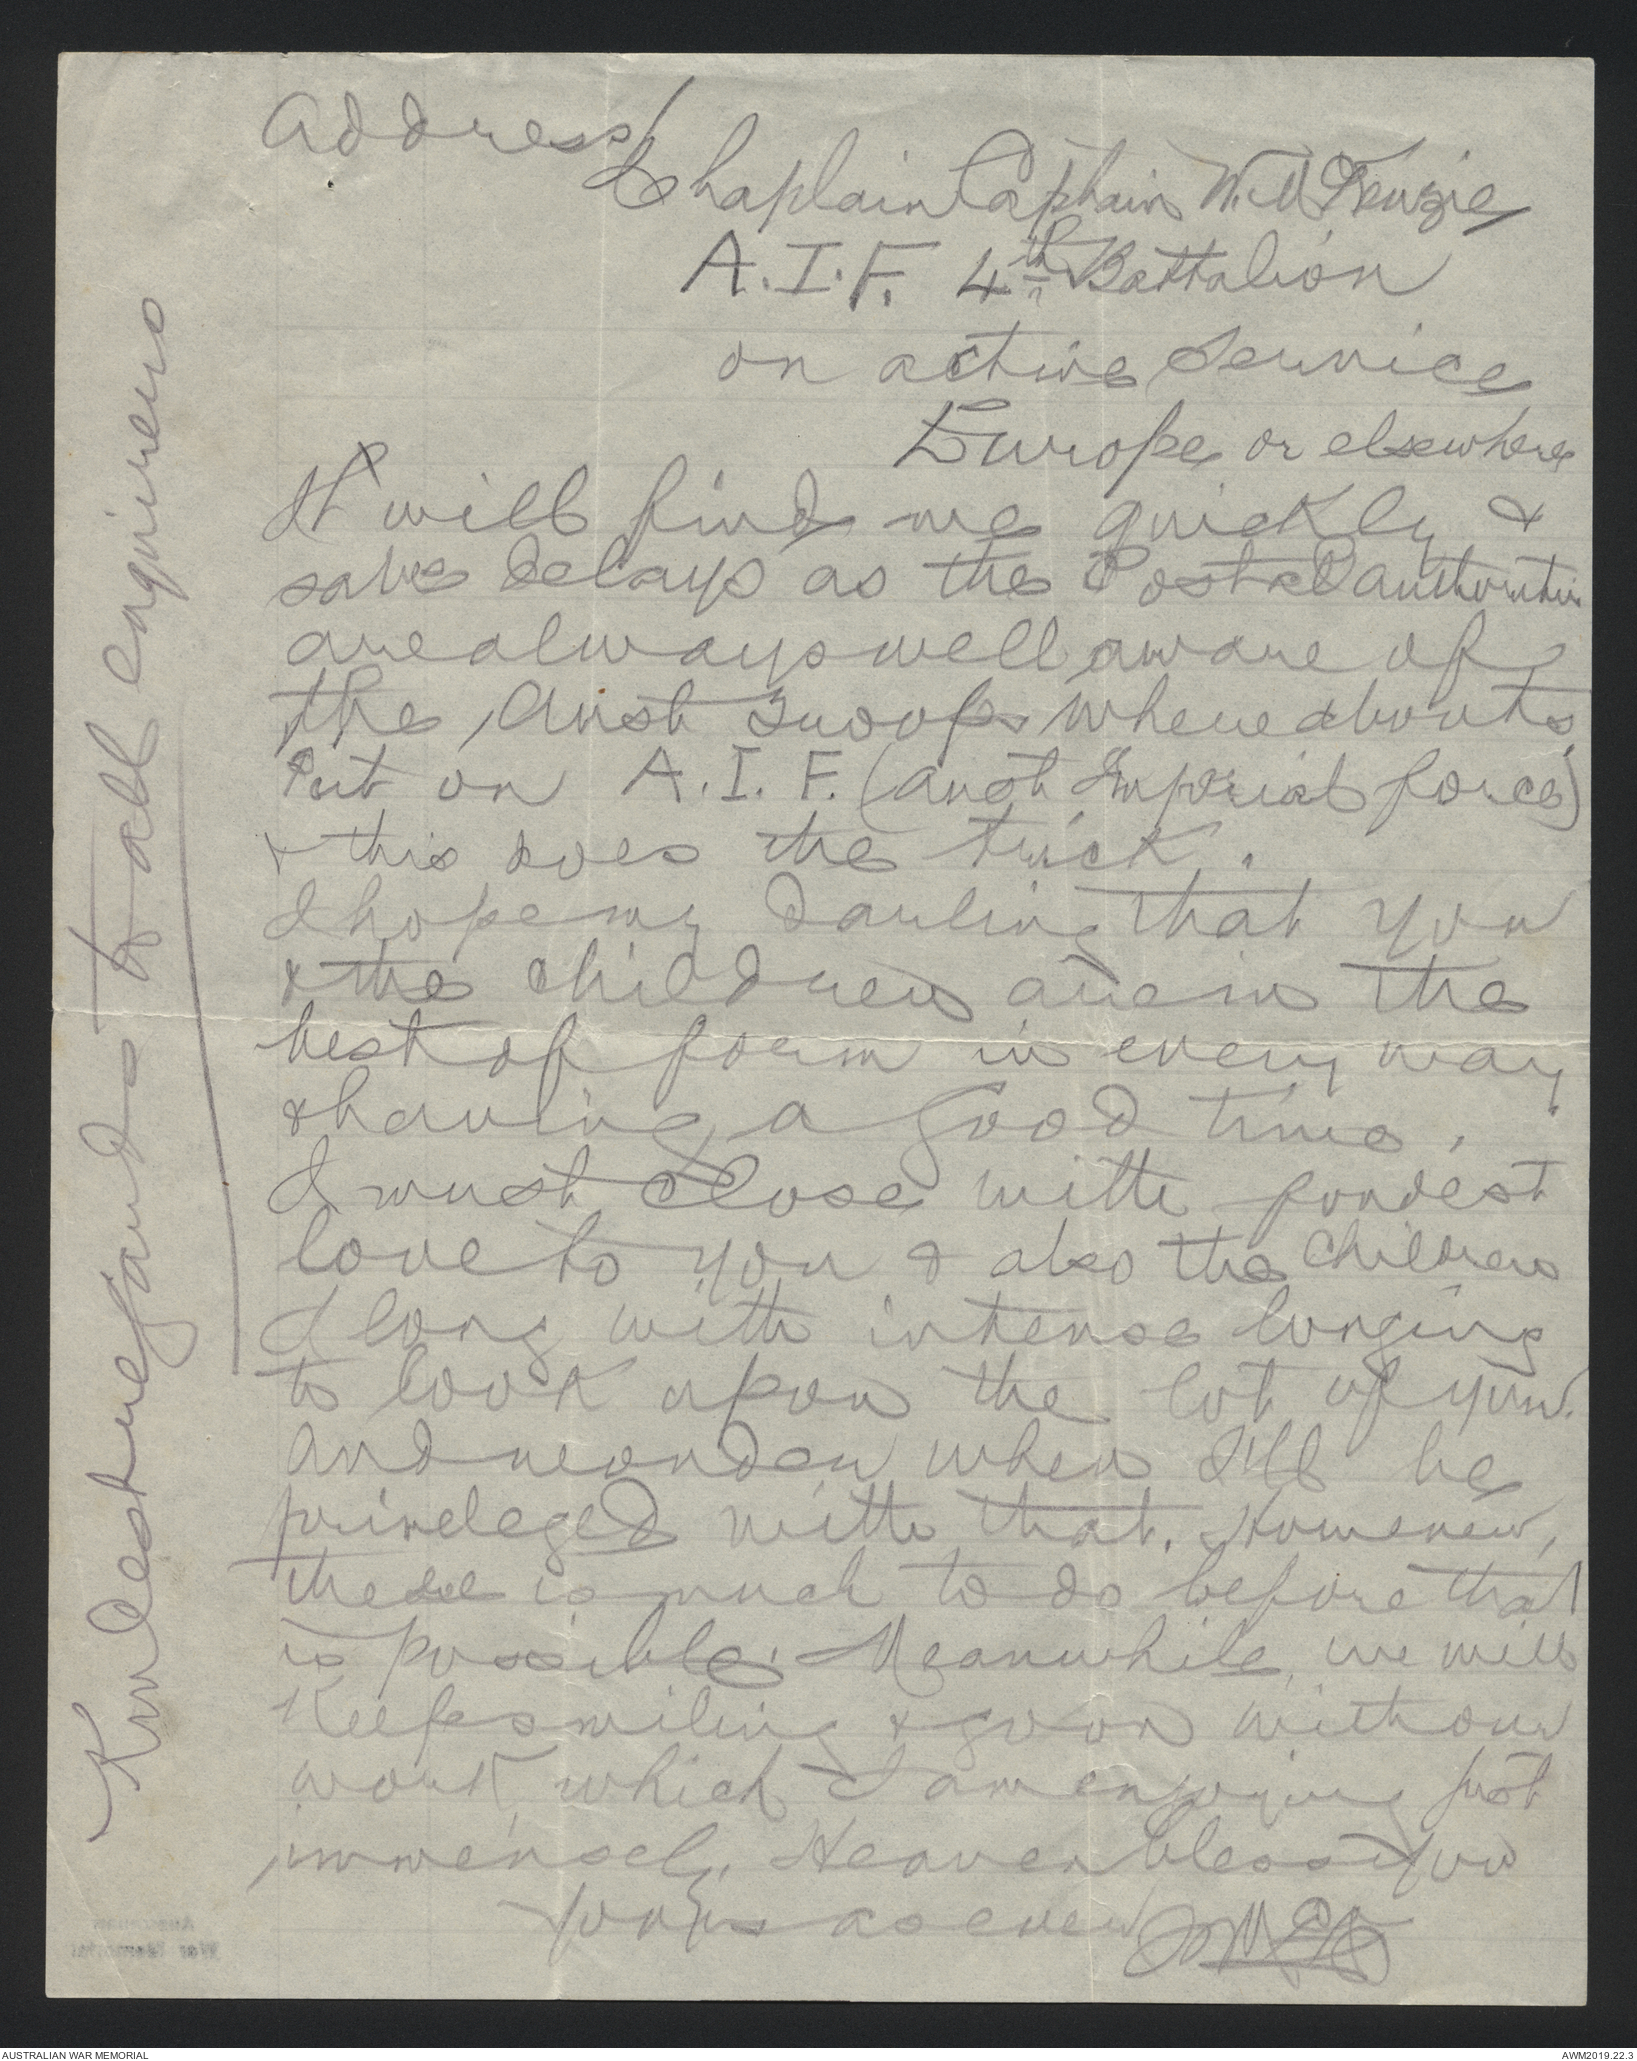 Address/
Chaplain Captain W. McKenzie
A.I.F. 4th Battalion
on active Service
Europe or elsewhere
It will find me quickly &
save delays as the Postal authorities
are always well aware of
the Aust Troops whereabouts,
Put on A.I.F. (Aust Imperial force)
& this does the trick.
I hope my darling that you
& the children are in the
best of form in every way
& having a good time.
I must close with fondest
love to you & also the children
I long with intense longing
to look upon the lot of you.
and wonder when I'll be
priveleged with that. However,
there is much to do before that
is possible. Meanwhile, we will
Keep smiling & go on with our
work, which I am enjoying just
immensely. Heaven bless you
Yours as ever
Kindest regards to all enquirers
Australian
War Memorial
AUSTRALIAN WAR MEMORIAL
AWM2019.22.3